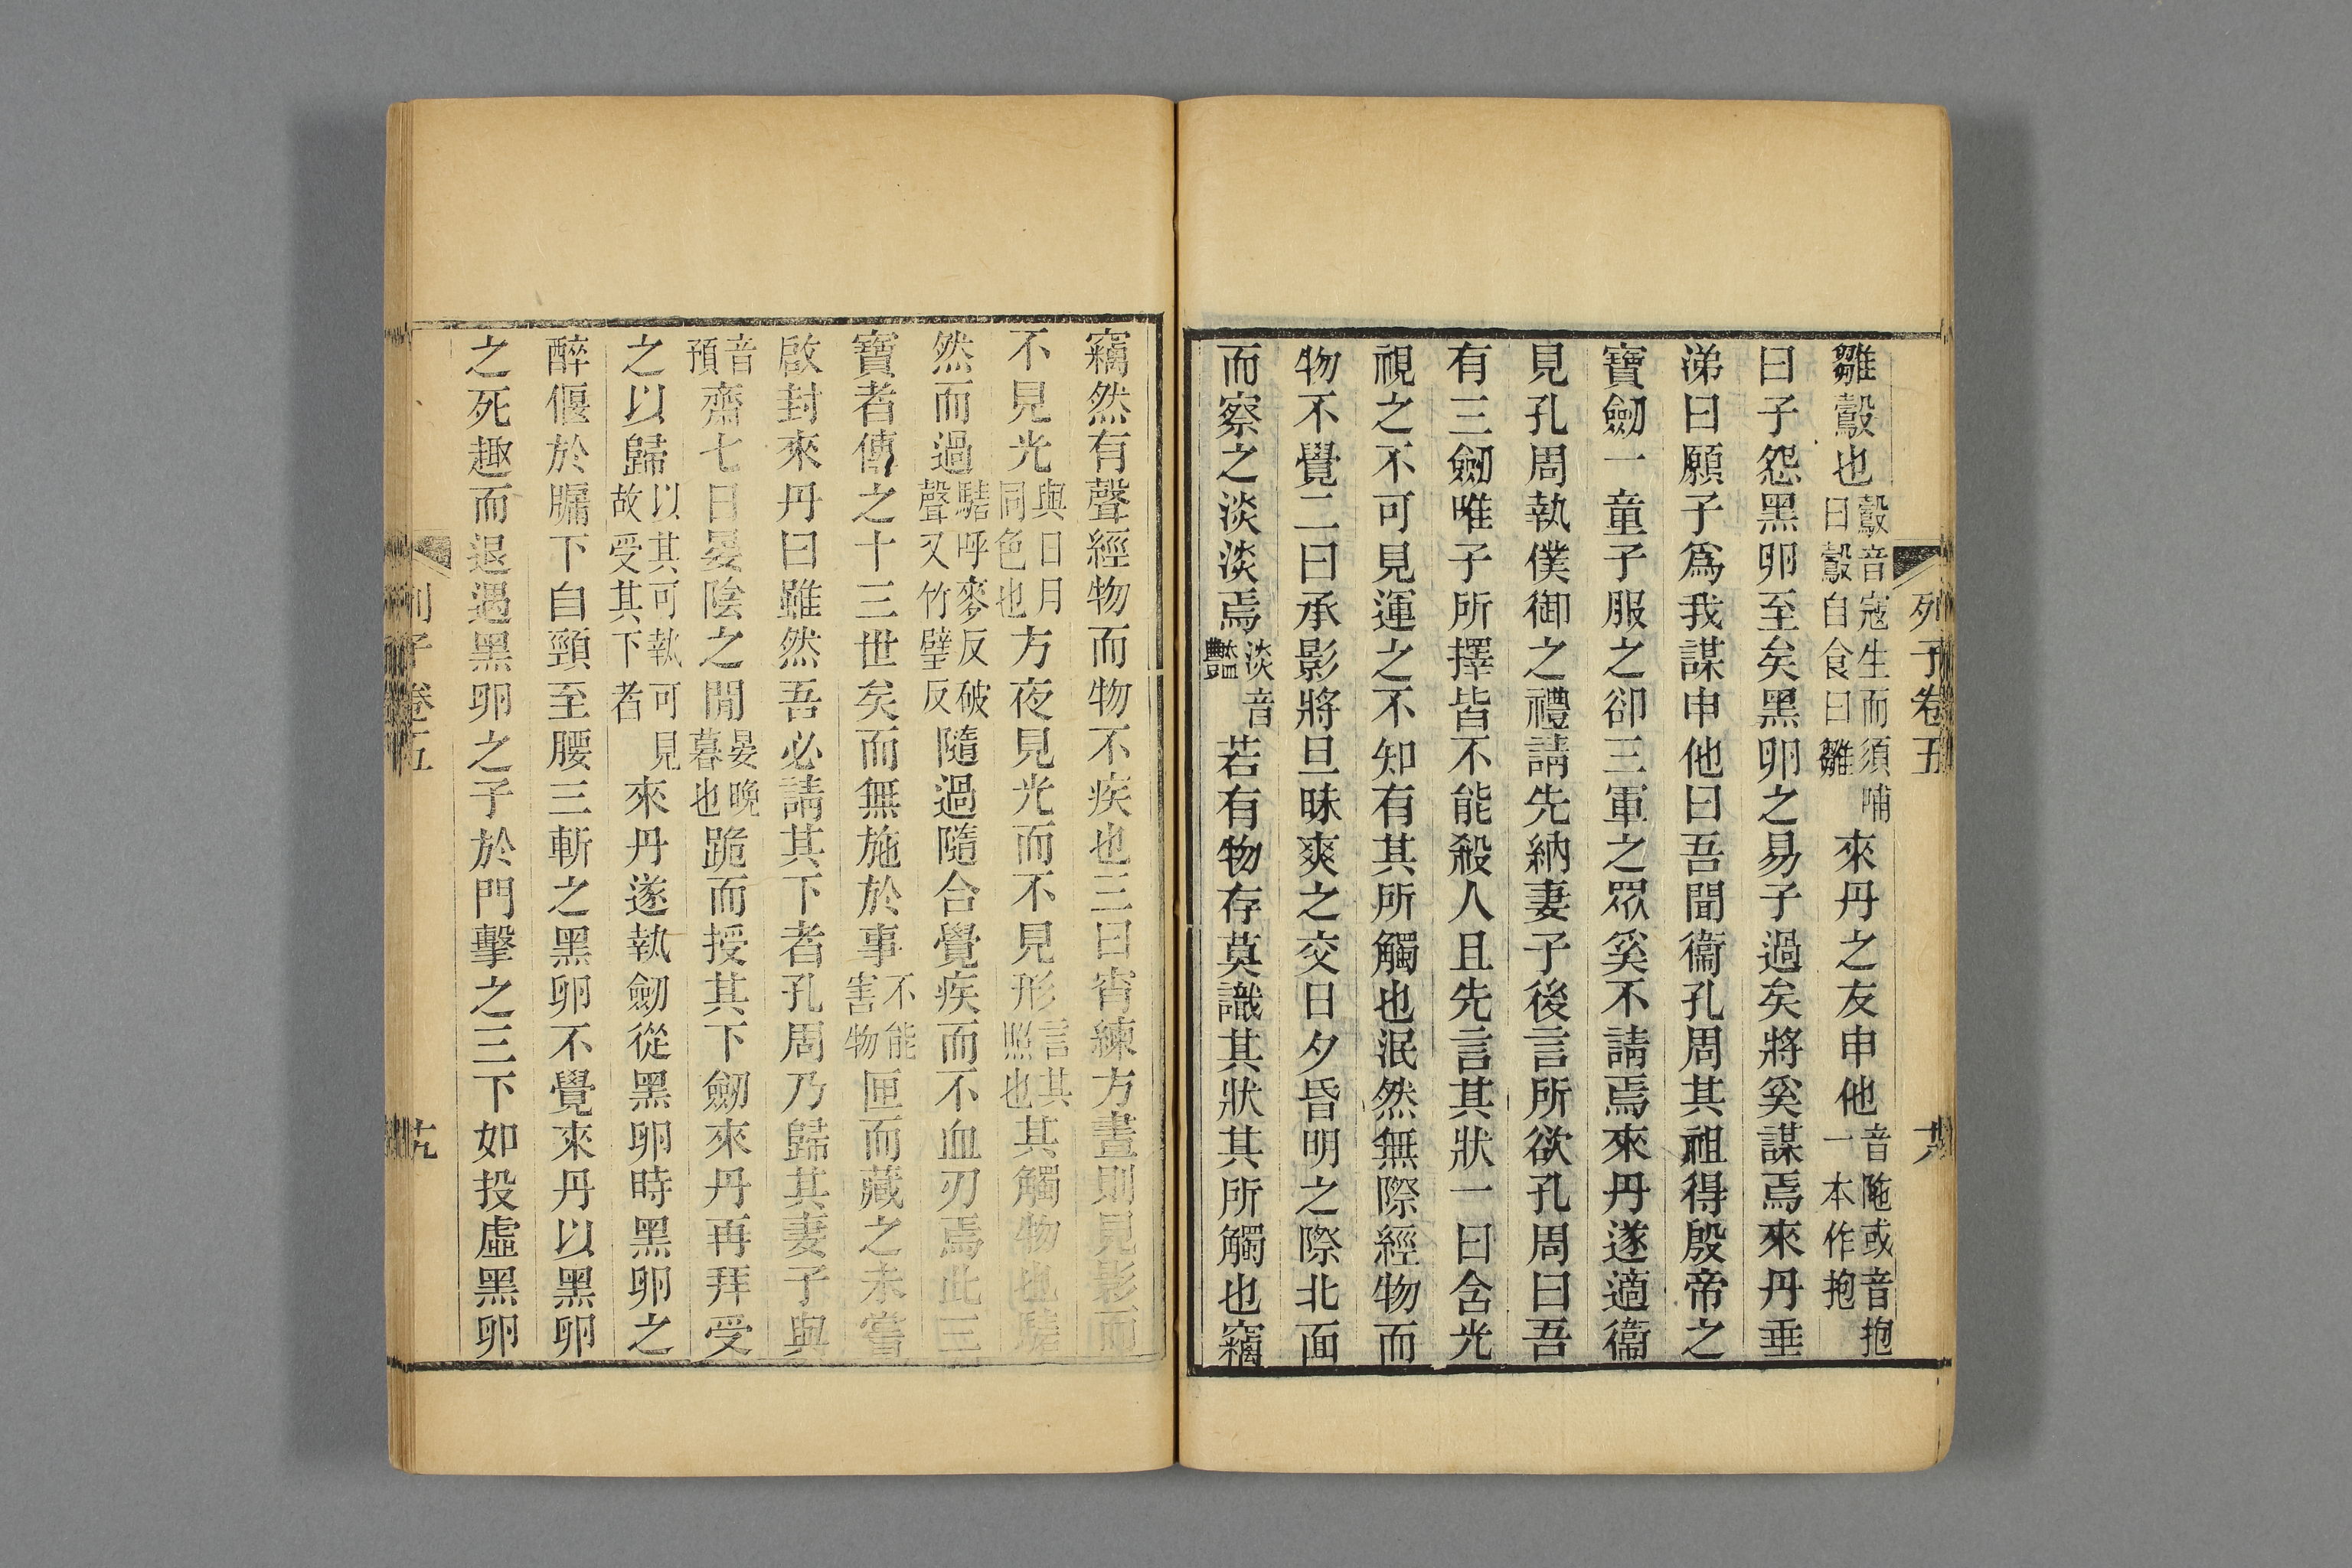 列子卷五
雛鷇也鷇音寇生而須哺曰鷇自食曰雛來丹之友申他音陁或音抱一本作抱
曰子怨黑卵至矣黑卵之易子過矣將奚謀焉來丹垂
涕曰願子爲我謀申他曰吾聞衞孔周其祖得殷帝之
寶劒一童子服之卻三軍之眾奚不請焉來丹遂適衞
見孔周執僕御之禮請先納妻子後言所欲孔周曰吾
有三劒唯子所擇皆不能殺人且先言其狀一曰含光
視之不可見運之不知有其所觸也泯然無際經物而
物不覺二曰承影將旦昧爽之交日夕昏明之際北面
而察之淡淡焉淡音豔若有物存莫識其狀其所觸也竊
竊然有聲經物而物不疾也三曰宵練方晝則見影而
不見光與日月同色也方夜見光而不見形言其照也其觸物也騞
然而過騞呼麥反破聲又竹璧反隨過隨合覺疾而不血刃焉此三
寶者傳之十三世矣而無施於事不能害物匣而藏之未嘗
啟封來丹曰雖然吾必請其下者孔周乃歸其妻子與
音預齋七日晏陰之閒晏晚暮也跪而授其下劒來丹再拜受
之以歸以其可執可見故受其下者來丹遂執劒從黑卵時黑卵之
醉偃於牖下自頸至腰三斬之黑卵不覺來丹以黑卵
之死趣而退遇黑卵之子於門擊之三下如投虛黑卵
列子卷五